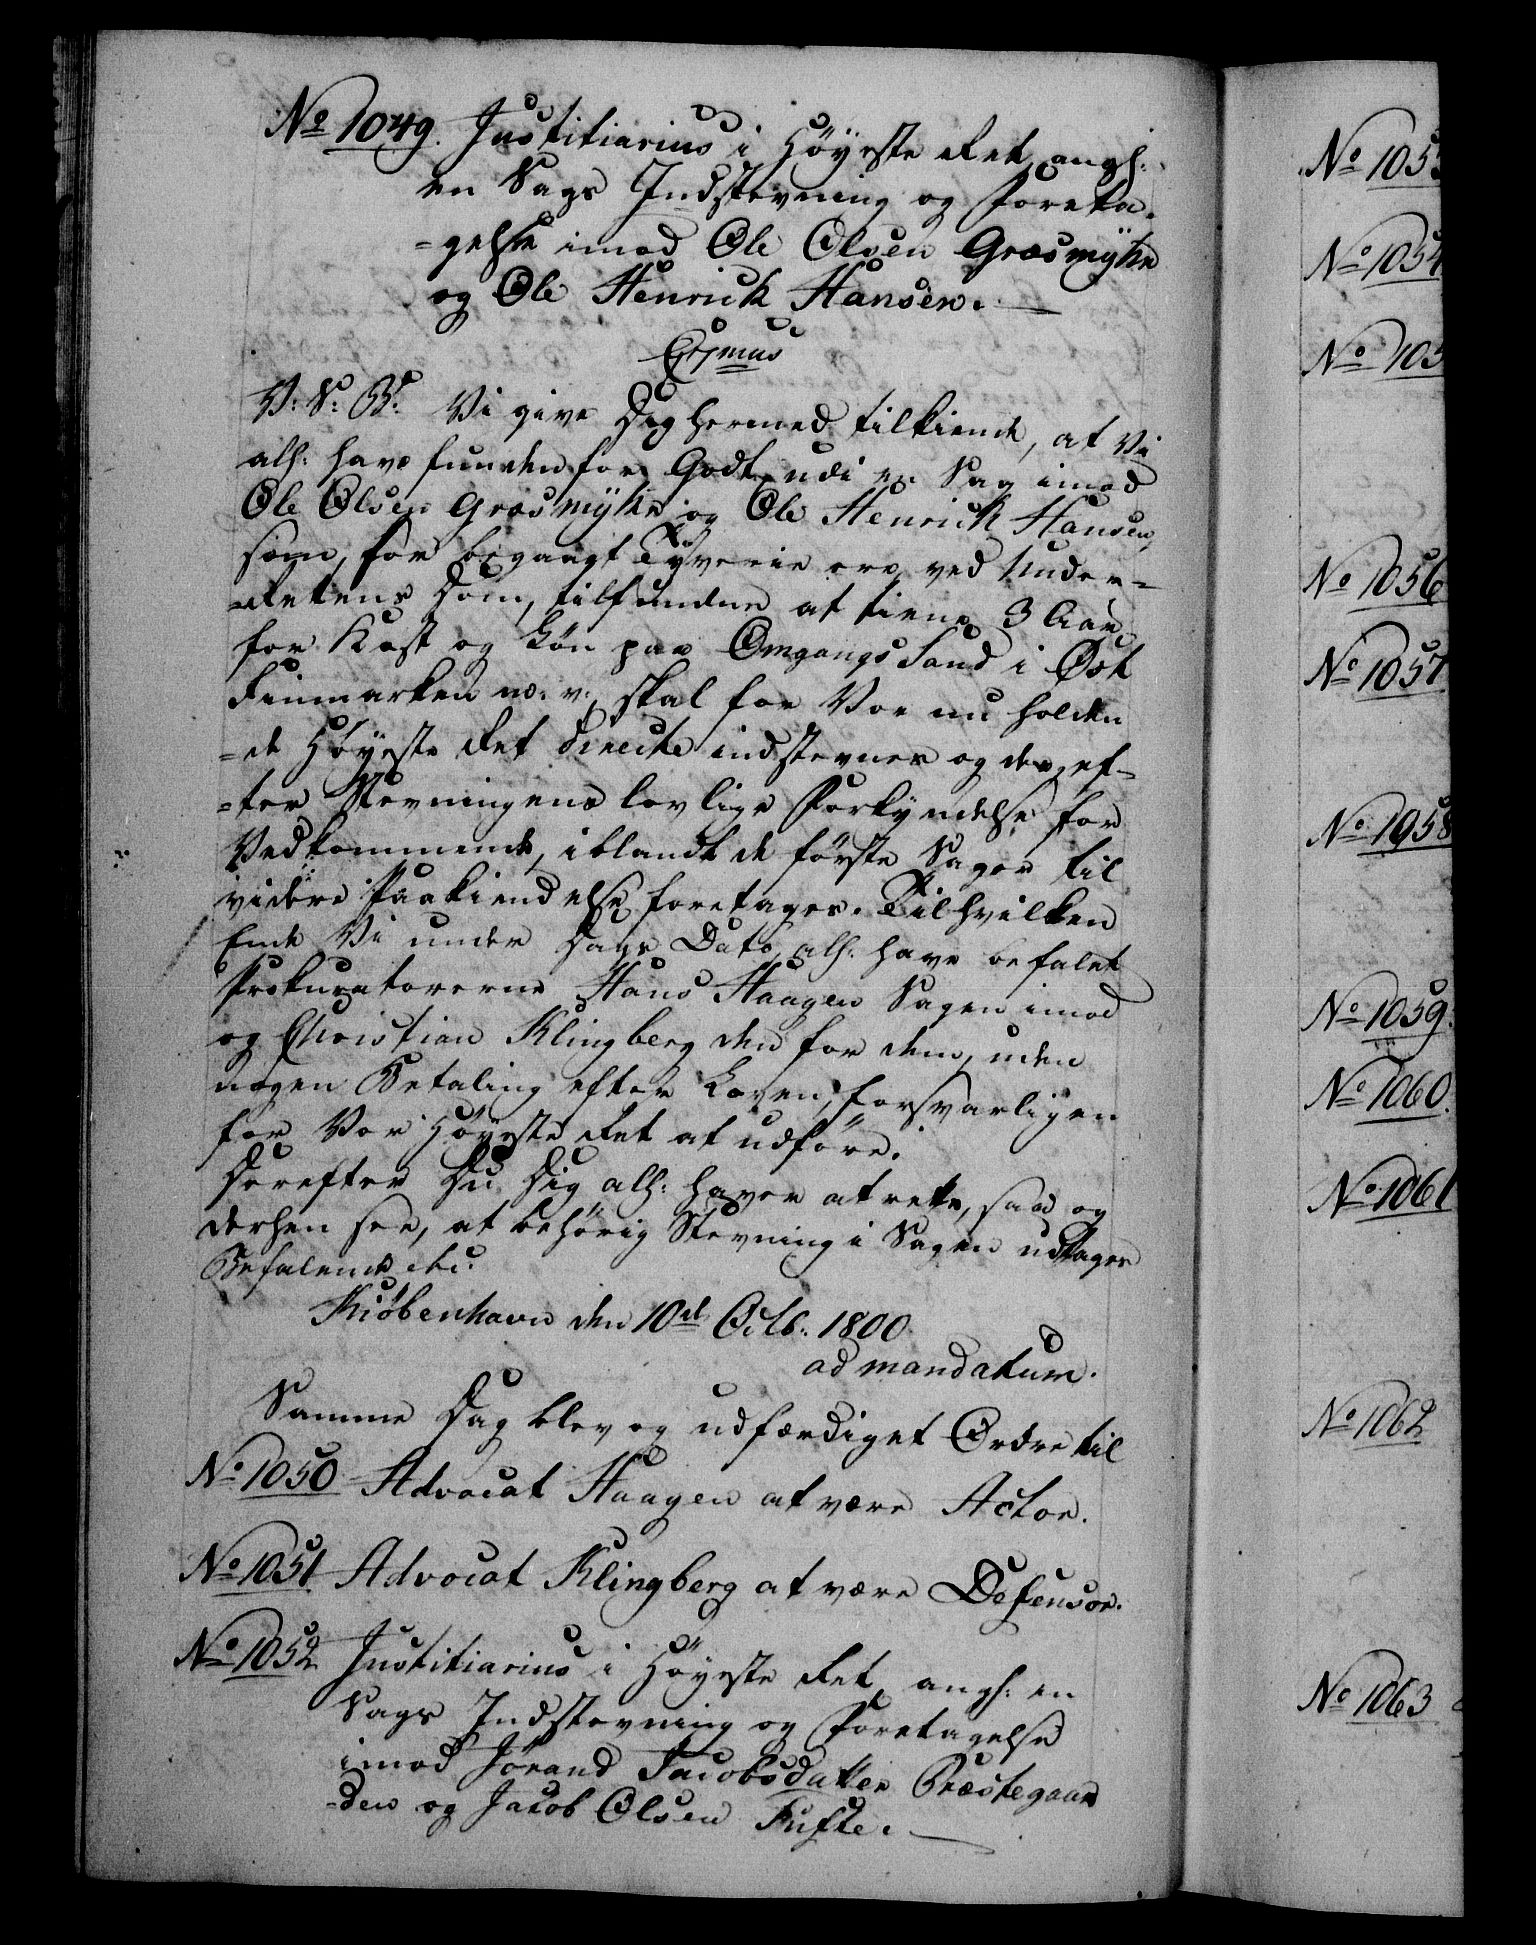 No 1049. Justitiarius i Höyeste Ret, angl:
en Sags Indstevning og Foreta-
=gelse imod Ole Olsen Græsmyhr
og Ole Henrick Hansen.
V: S: B: Vi give Dig hermed tilkiende, at Vi
alh: have funden for Godt, udi en Sag imod
Ole Olsen Græsmyhr og Ole Henrich Hansen,
som, for begaaet Tyverie ere ved Under-
=Rettens Dom, tilfundne at tiene 3 Aar
for Kost og Løn paa Omgangs Sand i Øst
Finmarken m: v:, skal for Vor nu holden
=de Höyeste Ret directe indstevnes og der, ef-
=ter Stevningens lovlige Forkyndelse for
Vedkommende, iblandt de förste Sager til
videre Paakiendelse foretages. Til hvilken
Ende Vi under Dags Dato, alh: have befalet
Prokuratorerne Hans Haagen Sagen imod
og Christian Klingberg den for dem, uden
nogen Betaling efter Loven, forsvarligen
for Vor Höyeste Ret at udföre.
Derefter Du Dig alh: haver at rette, saa og
derhen see, at behörig Stevning i Sagen udtages
Befalende etc:
Kiöbenhavn den 10de Octb: 1800.
ad mandatum.
Samme Dag blev og udfærdiget Ordre til
No 1050 Advocat Haagen at være Actor.
No 1051 Advocat Klingberg at være Defensor.
No 1052 Justitiarius i Höyeste Ret, angl: en
Sags Indstevning og Foretagelse
imod Jörand Jacobsdatter Præstegaar
=den og Jacob Olsen Tufte.
No 1053
No 1054
No 105
No 1056
No 1057
No 1058
No 1059.
No 1060.
No 1061
No 1062
No 1063